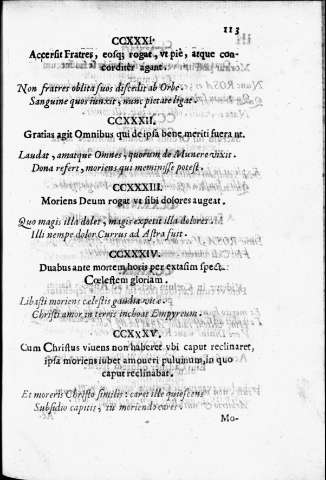 113
CCXXXI.
Accersit Fratres, eosq; rogat, vt piè, atque con-
corditèr agant.
Non fratres oblita suos discedit ab Orbe.
Sanguine quos iunxit, nunc pietate ligat.
CCXXXII.
Gratias agit Omnibus qui de ipsa bene meriti fuerant.
Laudat, amatque Omnes, quorum de Munere vixit.
Dona refert, moriens qui meminisse potest.
CCXXXIII.
Moriens Deum rogat vt sibi dolores augeat.
Quo magis illa dolet, magis expetit illa dolores.
Illi nempe dolor Currus ad Astra fuit.
CCXXXIV.
Duabus ante mortem horis per extasim spect.
Cœlestem gloriam.
Libasti moriens cælestis gaudia vitæ.
Christi amor in terris inchoat Empyreum.
CCXXXV.
Cum Christus viuens non haberet vbi caput reclinaret,
ipsa moriens iubet amoueri puluinum, in quo
caput reclinabat.
Et moreris Christo similis: caret ille quiescens
Subsidio capitis, tu moriendo
Mo-